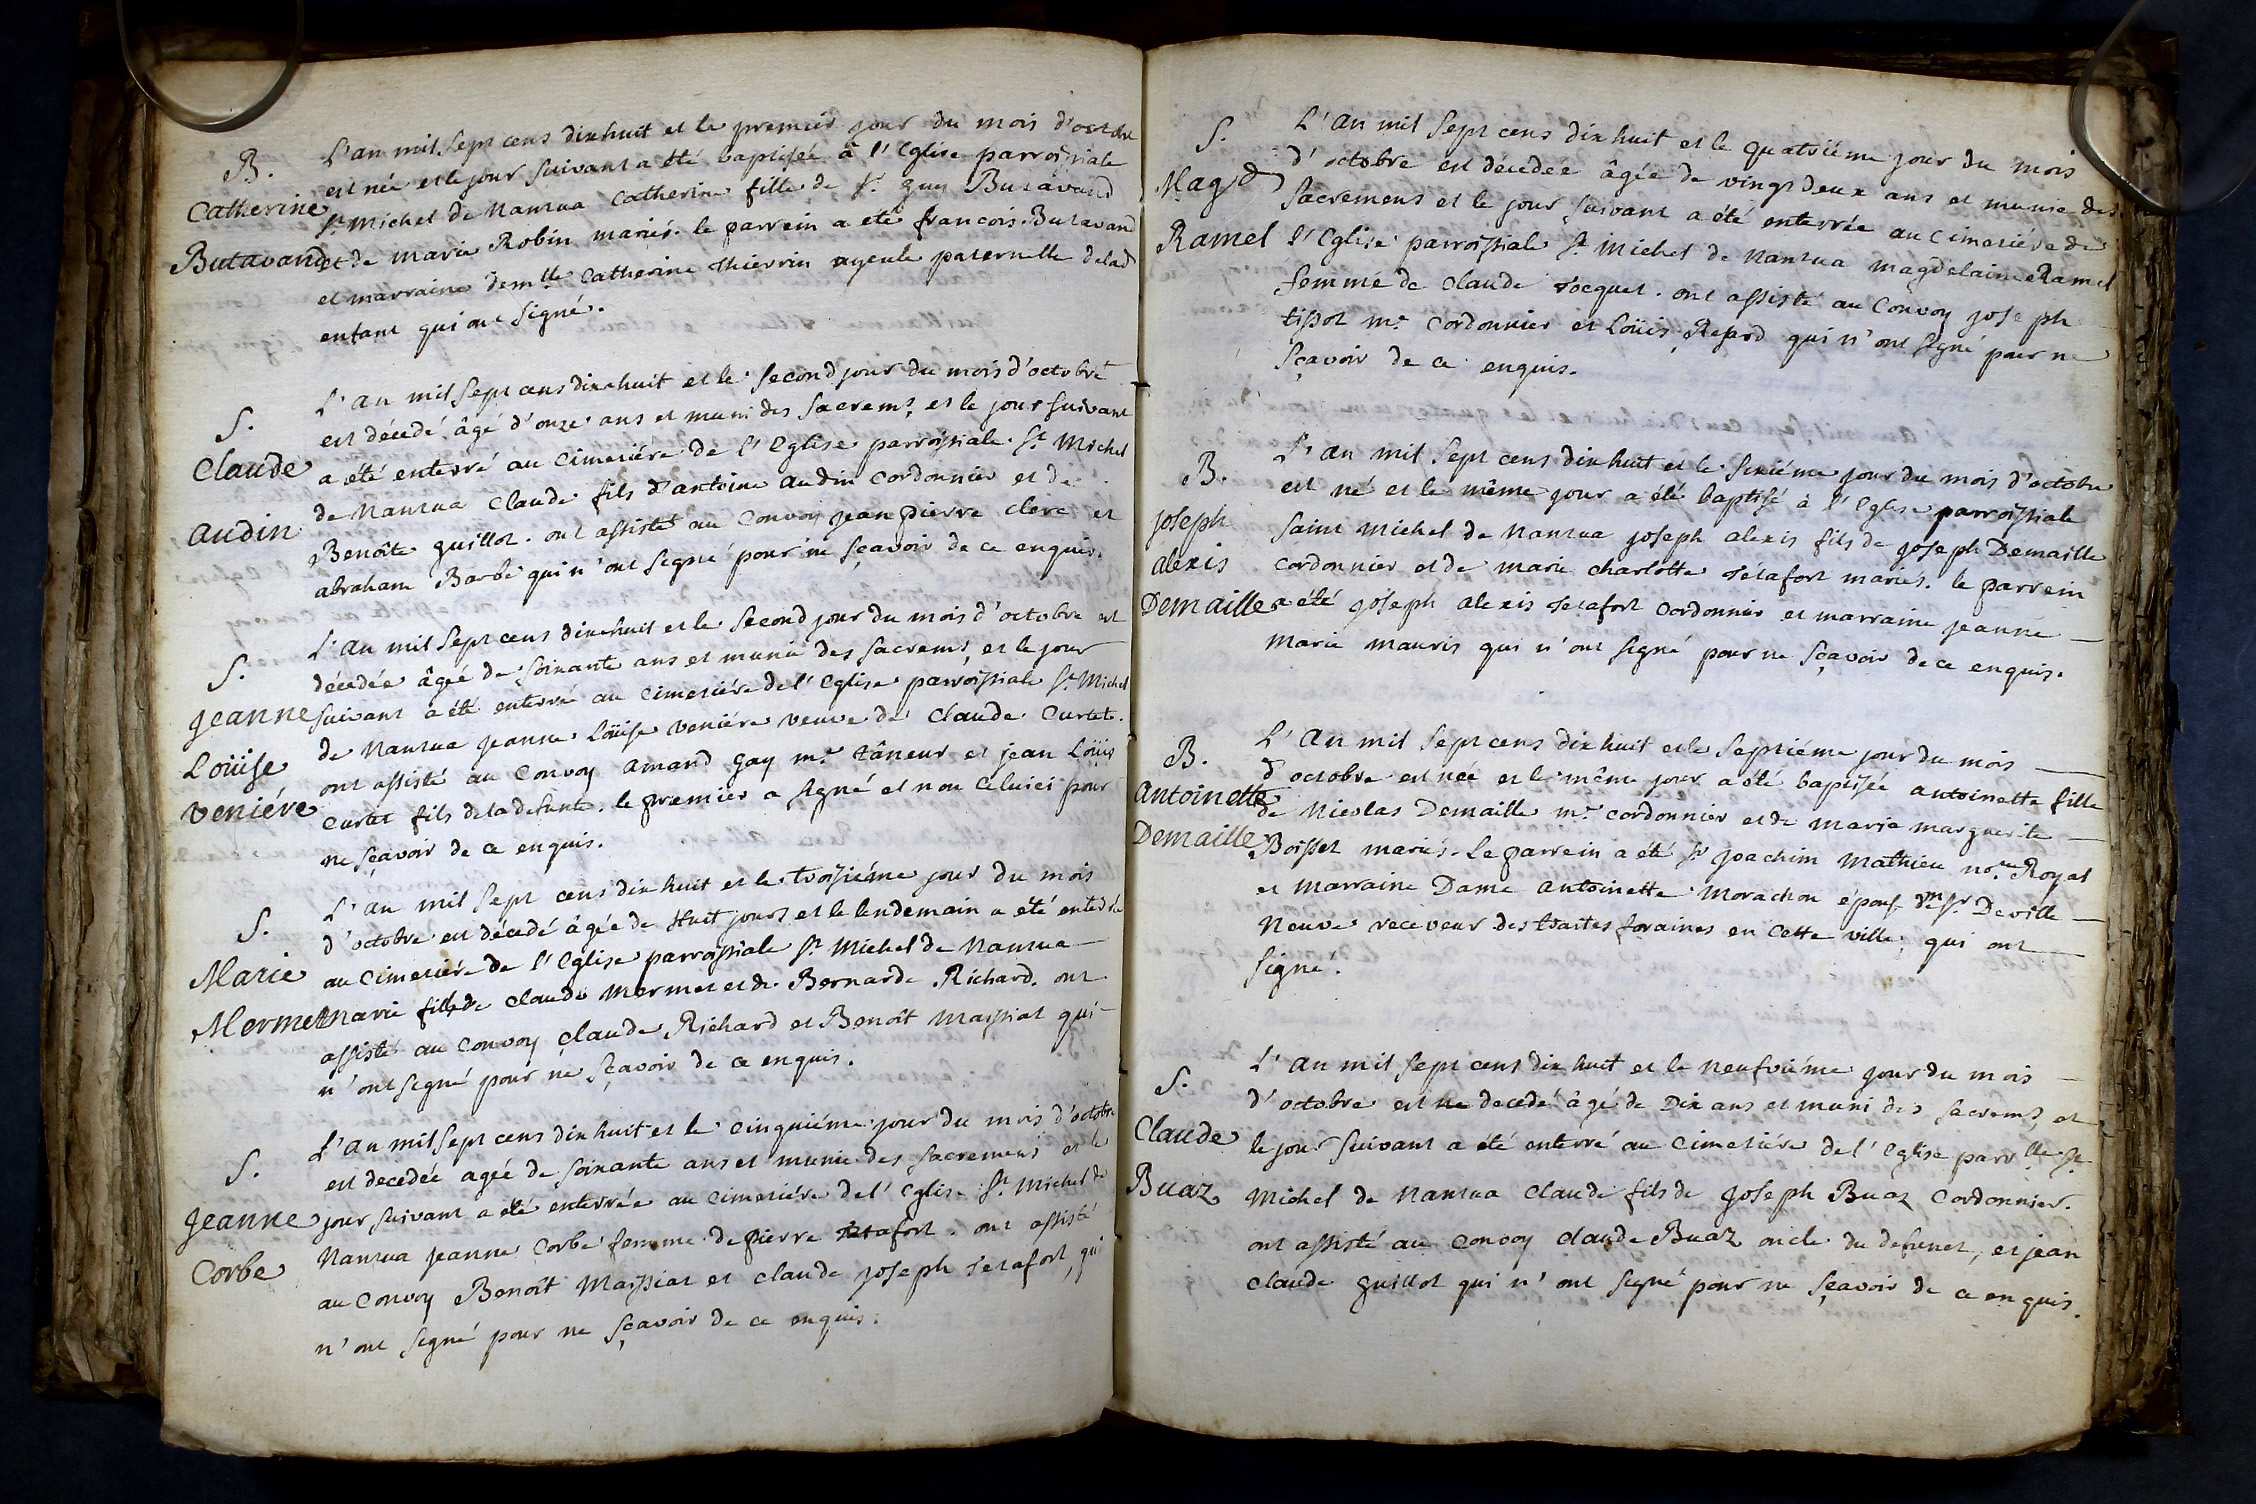 B.
Catherine
Butavand
L'an mil sept cens dixhuit et le premier jour du mois d'octobre
est née et le jour suivant a été baptisée à l'Eglise parroissiale
St Michel de Nantua Catherine fille de Sr. guy Butavand
et de marie Robin mariés. le parrein a eté francois Butavand
et marraine demlle Catherine Thierrin ayeule paternelle de lad
enfant qui ont signé.
S.
Claude
audin
L'an mil sept cens dixehuit et le second jour du mois d'octobre
est décedé âgé d'onze ans et muni des sacremts, et le jour suivant
a été enterré au cimetiére de l'Eglise parroissiale St Michel
de Nantua Claude fils d'antoine audin Cordonnier et de
Benoîte guillot. ont assisté au Convoy jean pierre clerc et
abraham Barbe qui n'ont signé pour ne sçavoir de ce enquis.
S.
jeanne
Loüise
veniére
L'an mil sept cens dixehuit et le second jour du mois d'octobre est
décedée âgée de soixante ans et munie des sacremts, et le jour
suivant a été enterré au cimetiére de l'Eglise parroissiale St Michel
de Nantua jeanne Loüise veniére veuve de Claude Curtet.
ont assisté au Convoy amand gay mr tâneur et jean Loüis
curtet fils de la defunte. le premier a signé et non celuici pour
ne sçavoir de ce enquis.
S.
Marie
Mermet
L'an mil sept cens dix huit et le troisiéme jour du mois
d'octobre est décedé âgée de huit jours et le lendemain a été enterrée
au cimetiére de l'Eglise parroissiale St Michel de Nantua
marie fille de claude mermet et de Bernarde Richard. ont
assisté au Convoy claude Richard et Benoît Maissiat qui
n'ont signé pour ne sçavoir de ce enquis.
S.
jeanne
Corbe
L'an mil sept cens dix huit et le cinquiéme jour du mois d'octobre
est decedée agée de soixante ans et munie des sacremens et le
jour suivant a été enterrée au cimetiére de l'Eglise St Michel de
Nantua jeanne Corbe femme de pierre Retafort. ont assisté
au Convoy Benoît Maissiat et claude joseph Jetafort, qui
n'ont signé pour ne sçavoir de ce enquis.
S.
Magd
Ramel
L'an mil sept cens dix huit et le quatriéme jour du mois
d'octobre est décedée âgée de vingt deux ans et munie des
sacremens et le jour suivant a été enterrée au cimetiére de
l'Eglise parroissiale St Michel de Nantua magdelaine Ramel
femme de claude Jocquet. ont assisté au Convoy joseph
tissot mr cordonnier et Loüis Repard qui n'ont signé pour ne
sçavoir de ce enquis.
B.
joseph
alexis
Demaille
L'an mil sept cens dix huit et le sixiéme jour du mois d'octobre
est né et le même jour a été baptisé à l'Eglise parroissiale
saint Michel de Nantua joseph alexis fils de joseph Demaille
cordonnier et de marie charlotte Jetafort mariés. le parrein
a été joseph alexis Jetafort cordonnier et marraine jeanne
marie mauris qui n'ont signé pour ne sçavoir de ce enquis.
B.
antoinette
Demaille
L'an mil sept cens dix huit et le septiéme jour du mois
d'octobre est née et le même jour a été baptisée antoinette fille
de Nicolas Demaille mr cordonnier et de marie marguerite
Boisset mariés. Le parrein a été Sr joachim Mathieu nore Royal
et marraine Dame antoinette Morachon épouse de mr Sr Deville
Neuve receveur des traites foraines en cette ville, qui ont
signé.
S.
Claude
Buaz
L'an mil sept cens dix huit et le neufviéme jour du mois
d'octobre est decedé âgé de Dix ans et muni des sacremts, et
le jour suivant a été enterré au cimetiére de l'Eglise parrlle St
Michel de Nantua claude fils de joseph Buaz Cordonnier.
ont assisté au Convoy claude Buaz oncle du defunct, et jean
claude guillot qui n'ont signé pour ne sçavoir de ce enquis.